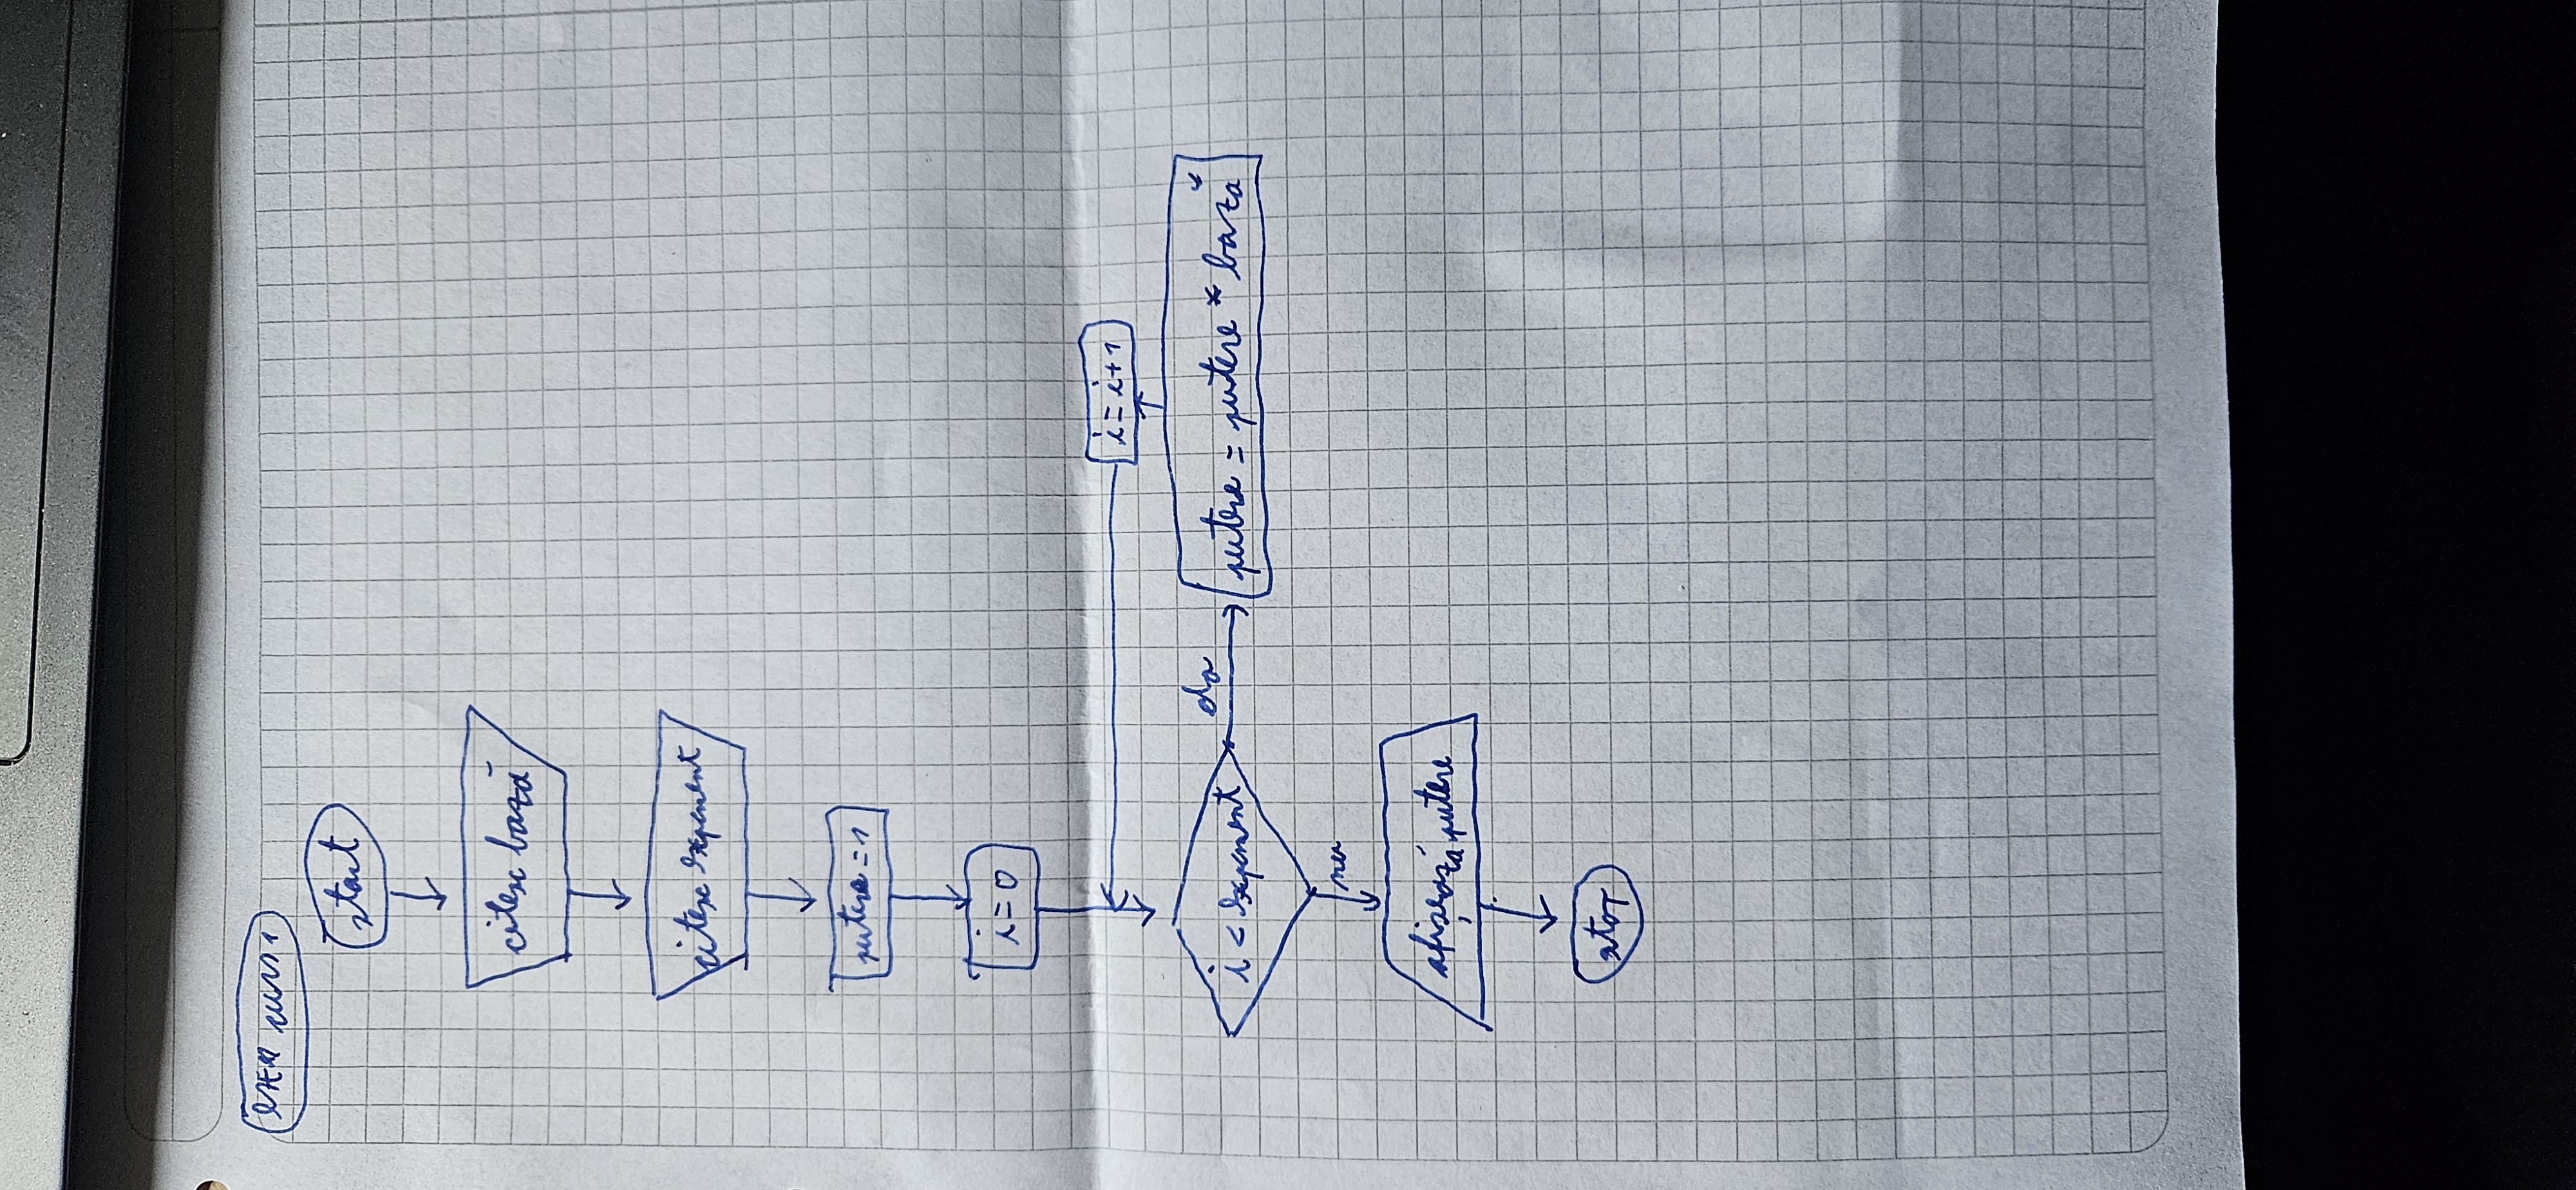 start
citesc bază
citesc exponent
putere = 1
i = 0
i = i + 1
i < exponent
da
putere = putere * bază
nu
afișează putere
stop